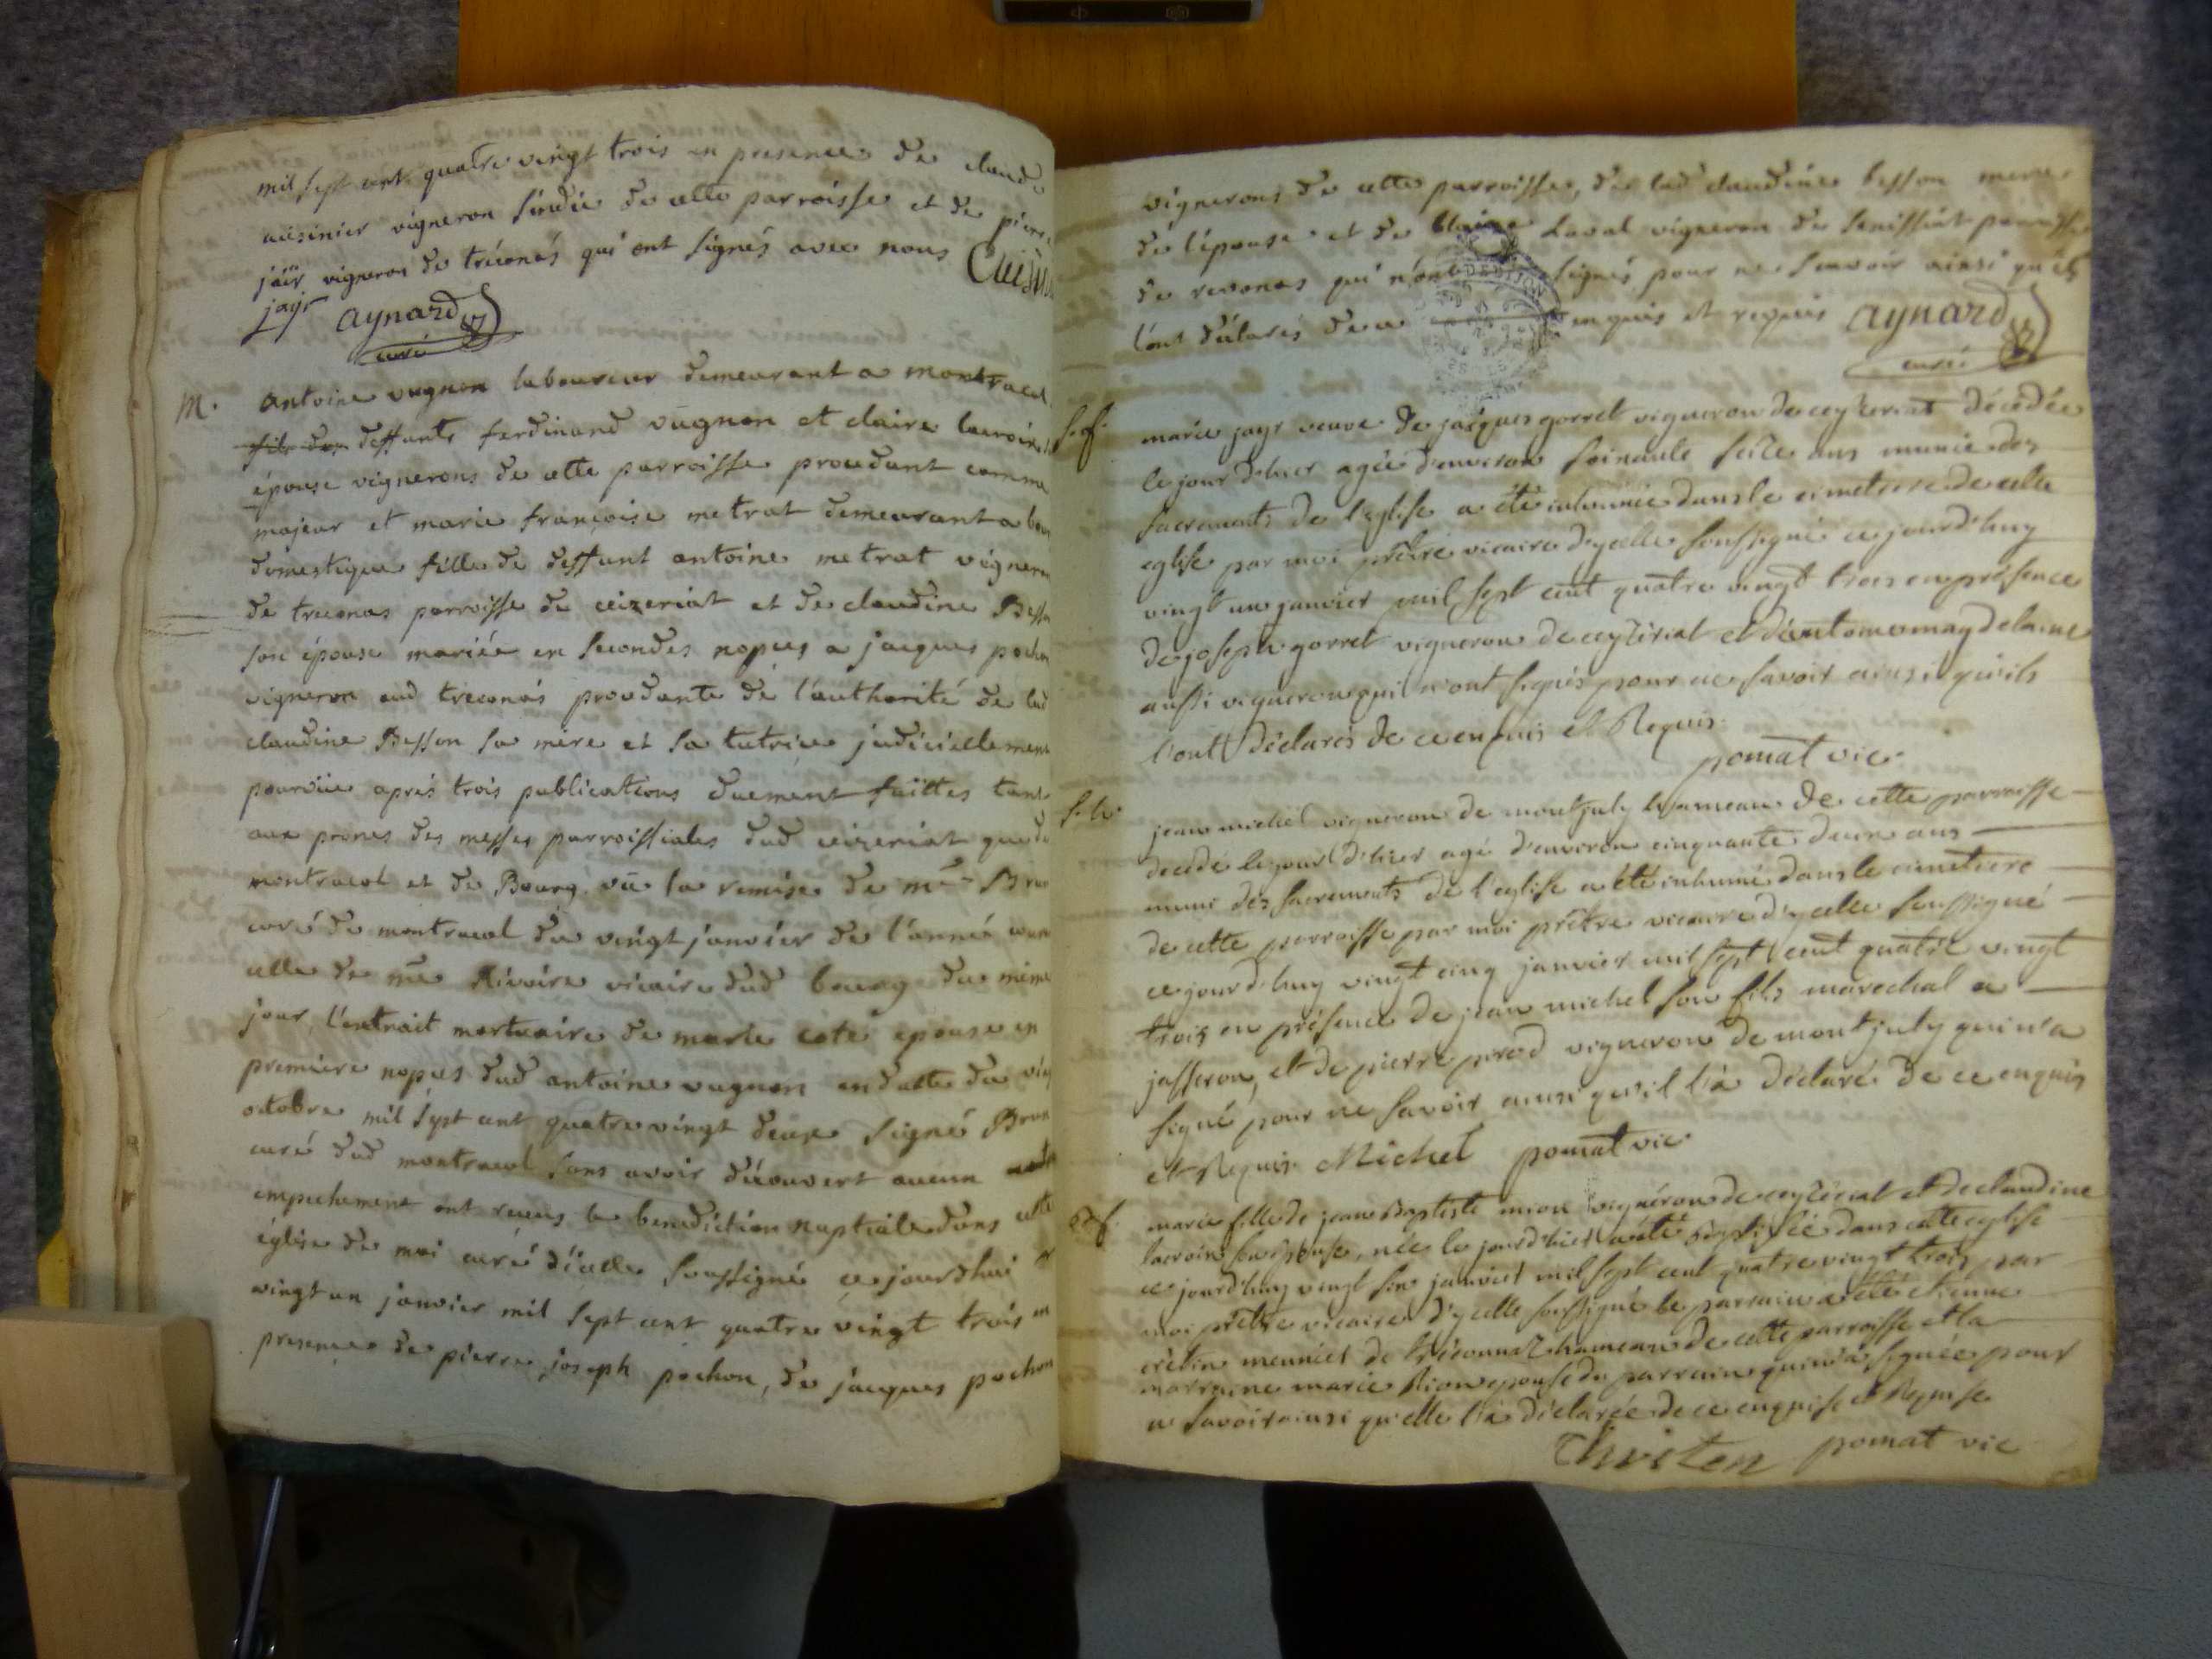 mil sept cent quatre vingt trois en presence de claude
cuisinier vigneron sindic de cette parroisse et de pierre
jaïr vigneron de tréconás qui ont signés avec nous Cuisin
jayr aynard
curé
M. antoine vugnon laboureur demeurant a montracol
fils des deffunts ferdinand vugnon et claire lacroix
épouse vignerons de cette parroisse procedant comme
majeur et marie francoise metrat demeurant a bourg
domestique fille de deffunt antoine metrat vigneron
de treconas parroisse de ceizeriat et de claudine Besson
son épouse mariée en secondes nopces a jacques pochon
vigneron aud treconás procedante de l'authorité de lad
claudine Besson sa mère et sa tutrice judiciellement
pourvüe aprés trois publications duement faittes tant
aux prones des messes parroissiales dud ceizeriat que de
montracol et de Bourg vü la remise de mre
curé de montracol du vingt janvier de l'année
celle de mre Rivoire vicaire dud bourg du même
jour, l'extrait mortuaire de marie cote epouse en
premiere nopces dud antoine vugnon en datte du
octobre mil sept cent quatre vingt deux signé
curé dud montracol sans avoir découvert aucun
empechement ont receus la benediction nuptiale dans cette
église de moi curé d'icelle soussigné ce jourdhui
vingt un janvier mil sept cent quatre vingt trois en
presence de pierre joseph pochon, de jacques pochon
vignerons de cette parroisse, de lad claudine besson mere
de l'épouse et de Laval vigneron de senissiat parroisse
de revonas qui n'ont signés pour ne scavoir ainsi qu'ils
l'ont déclarés de ce enquis et requis aynard
curé
s.f. marie jayr veuve de jacques gorret vigneron de ceyzeriat décédée
le jour d'hier agée d'environ soixante seize ans munie des
sacrements de l'eglise a été inhumée dans le cimetiere de cette
eglise par moi prêtre vicaire d'ycelle soussigné ce jourd'huy
vingt un janvier mil sept cent quatre vingt trois en présence
de joseph gorret vigneron de ceyzériat et d'antoine maydelaine
aussi vigneron qui n'ont signés pour ne savoir ainsi qu'ils
l'ont déclarés de ce enquis et Requis.
pomat vic
s.h. jean michel vigneron de montjuly hameau de cette parroisse
decedé le jour d'hier agé d'environ cinquante deux ans
muni des sacrements de l'eglise a été inhumé dans le cimetiere
de cette parroisse par moi prêtre vicaire d'ycelle soussigné
ce jourd'huy vingt cinq janvier mil sept cent quatre vingt
trois en présence de jean michel son fils marechal a
jasseron, et de pierre perod vigneron de montjuly qui n'a
signé pour ne savoir ainsi qu'il l'a déclaré de ce enquis
et Requis. Michel pomat vic
marie fille de jean Baptiste mion vigneron de ceyzériat et de claudine
lacroix son épouse, née le jour d'hier a été Baptisée dans cette eglise
ce jourd'huy vingt six janvier mil sept cent quatre vingt trois par
moi prêtre vicaire d'ycelle soussigné le parrain a été etienne
crétin meunier de tréconnaz hameau de cette parroisse et la
marraine marie Rion epouse du parrain qui n'a signée pour
ne savoir ainsi qu'elle l'a déclarée de ce enquise et Requise
pomat vic